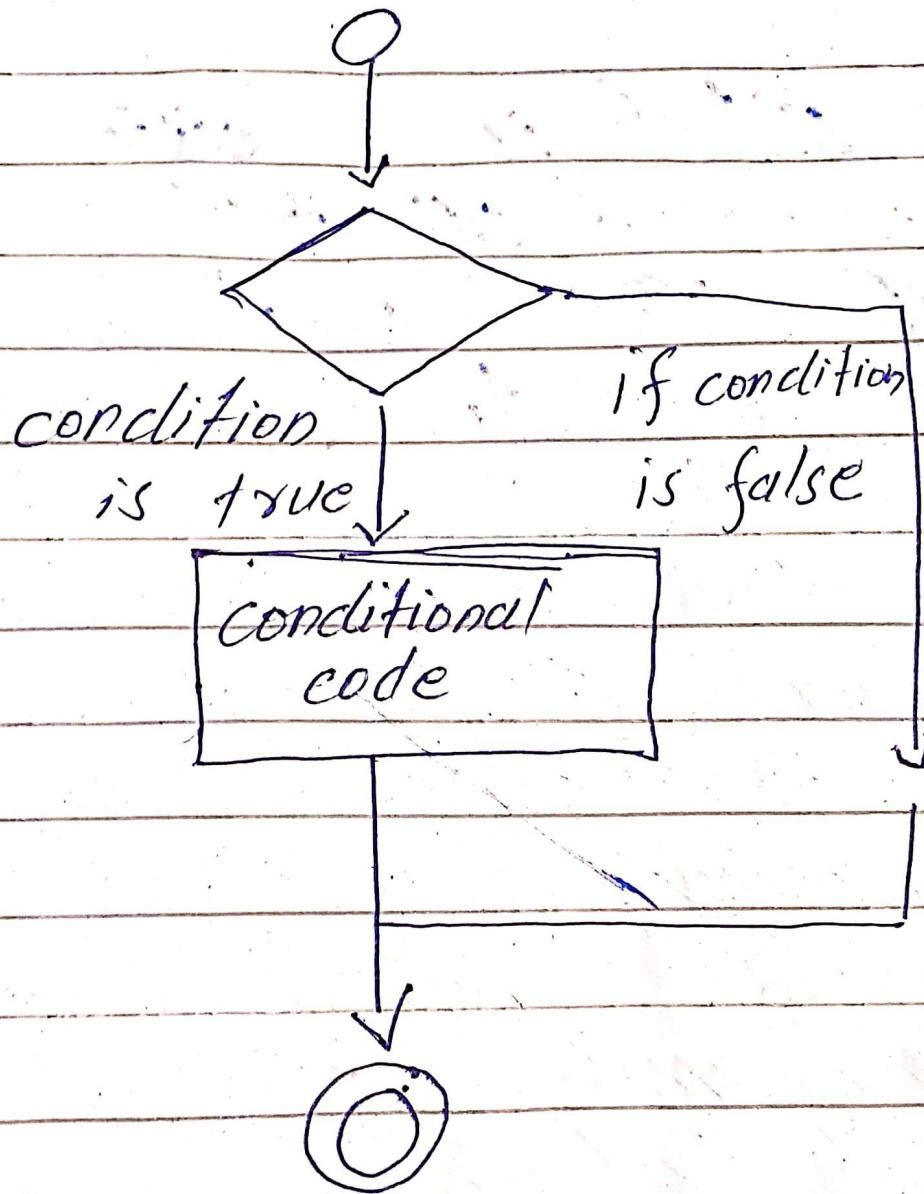 condition
is true
if condition
is false
conditional
code